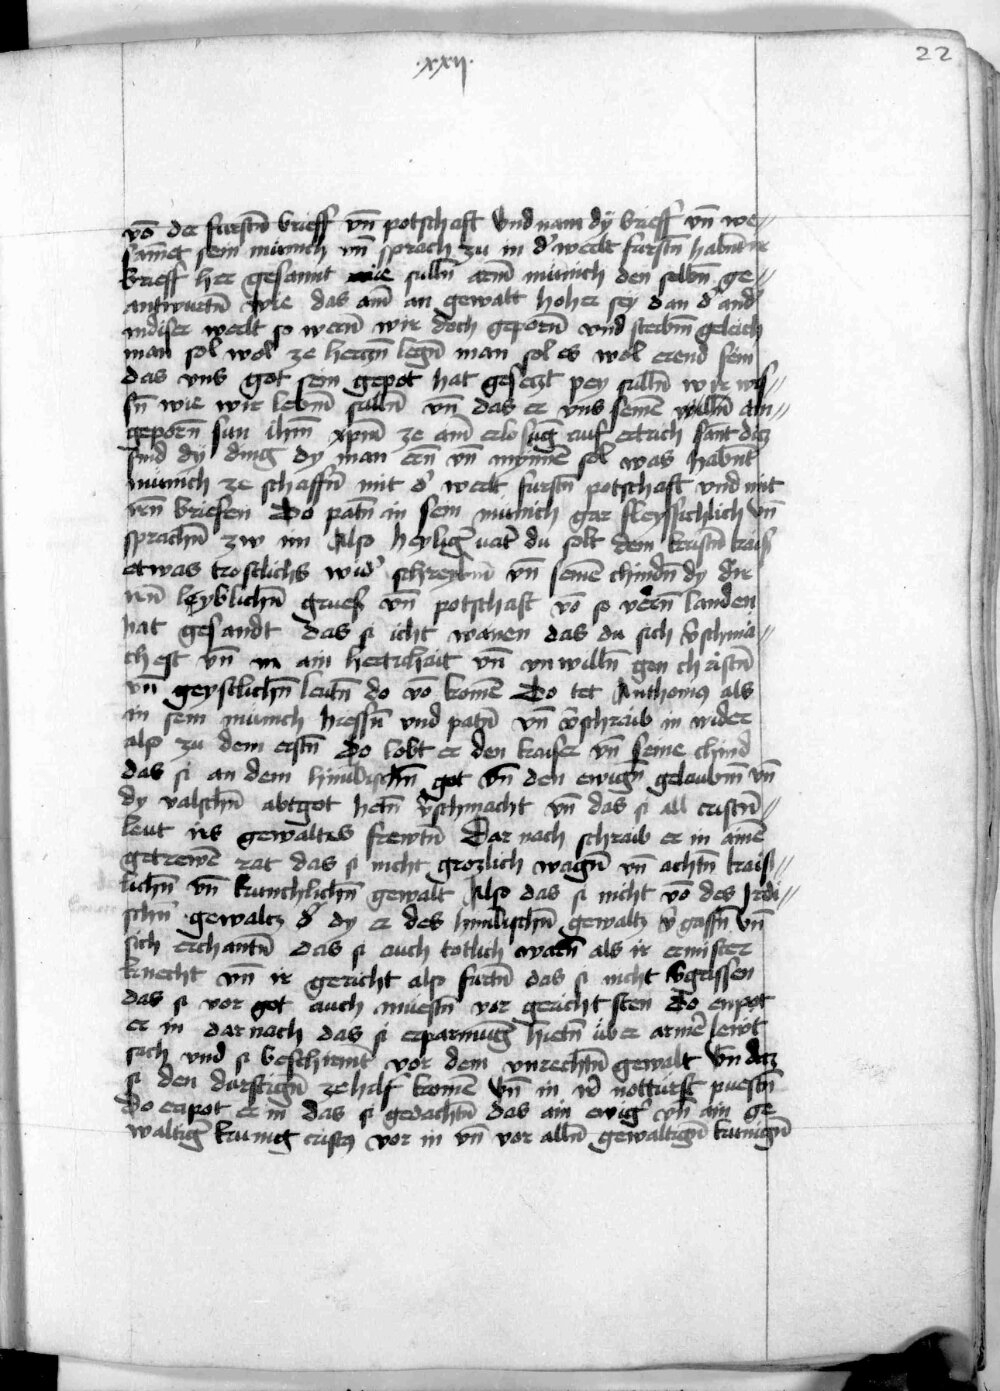 .xxij.
22
võ der furstñ brieff vñ potschaft Vnd nam dÿ brieff vñ we//
samet sein münich vñ sprach zu in d' werlt furstñ habnt ir
brieff her gesannt wie sulln arm münich den selbñ ge//
antwurtñ wie das ain an gewalt hoher sey dan d' and'
in diser werlt so wern wir doch geporñ vnd sterbm geleich
man sol wol ze hertzñ legñ man sol es wol erend sein
das vns got sein gepot hat gesetzt pey sulln wir wis//
sñ wie wir lebm sulln vñ das er vns seinē willñ ain//
geporñ sun ihm xpm ze ainr erlosūg auf ertrich sant daz
sind dÿ ding dy man ern vñ mynnen sol was habnt
münich ze schaffñ mit d' werlt furstñ potschaft vnd mit
irñ briefen Do patñ in sein münich gar fleyssichlich vñ
sprachñ zw im Also heylig' vat' du solt dem kristñ kais'
etwas trostlichs wid' schreybm vñ seinē chindñ dy dir
irñ leyblichñ grues vñ potschaft võ so verñ landen
hat gesandt das si icht wanen das du sich v'schma//
chest vñ in ain hertichait vñ vnwillñ gen christñ
vñ geystlichñ leutñ do võ komē Do tet Anthonius als
in sein münich hiessñ vnd patñ vñ v'schraib in wider
also zu dem erstñ Do lobt er den kaiser vñ seine chind
das si an dem himlischñ got vñ den ewigñ gelaubm vñ
dy valschñ abtgot hetñ v'schmacht vñ das si all cristñ//
leut irs gewaltes frewtñ Dar nach schraib er in ainē
getrewē rat das si nicht grozlich wagñ vñ achtñ kaiß//
lichñ vñ kunichlichñ gewalt Also das si nicht võ des Irdi//
schñ gewaltz er dy er des himlischñ gewaltz v'gassñ vñ
sich erchantñ das si auch totlich warñ als ir ermister
knecht vñ ir gericht also furtñ das si nicht v'grissen
das si vor got auch müestñ vor gericht sten Do enpot
er in dar nach das si erparmūg hietñ über armē lewt
sich vnd si beschirmt vor dem vnrechtñ gewalt vñ daz
si den durftigñ ze hilf komē vñ in ir notturft puestñ
Do enpot er in das si gedachtñ das ain ewig' vñ ain ge
waltig' kunig cristus vor in vñ vor alln gewaltigñ kunigñ